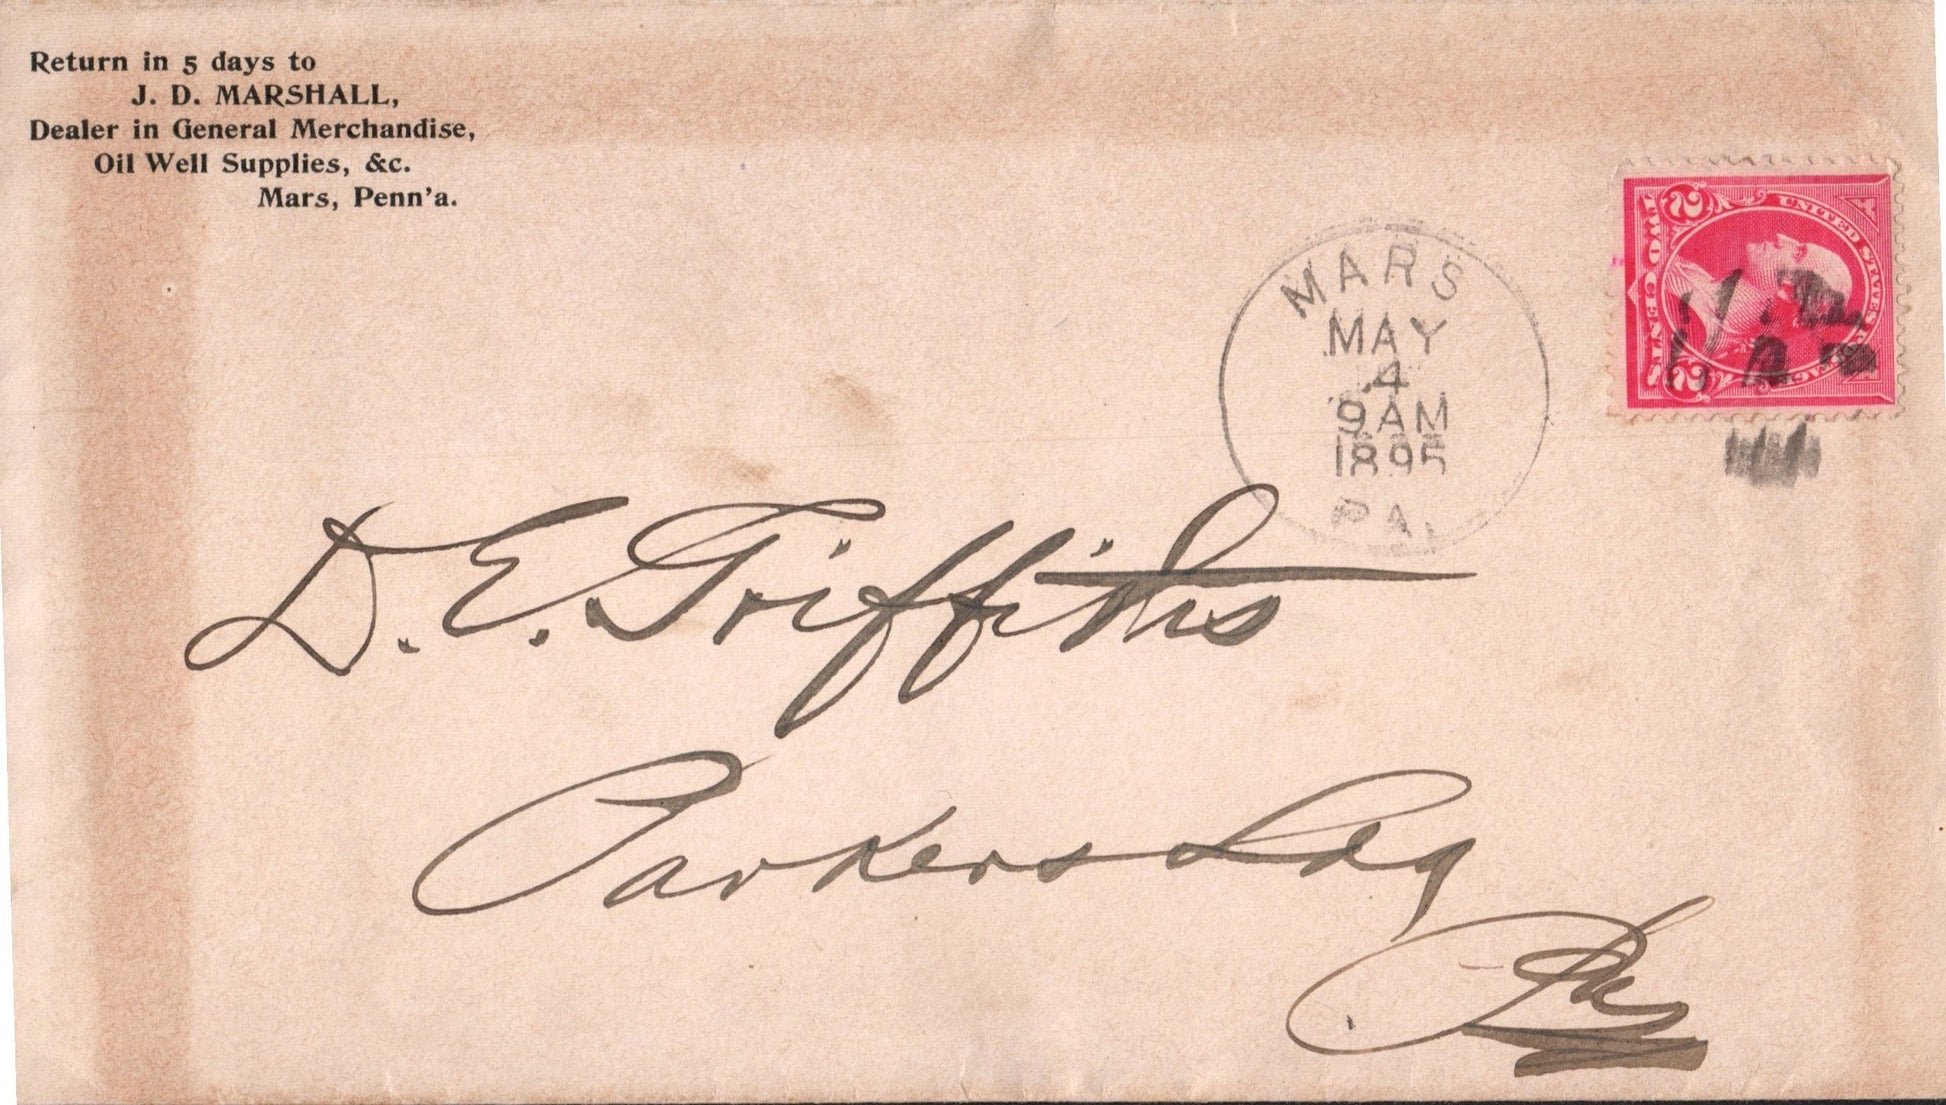 Return in 5 days to
J. D. MARSHALL,
Dealer in General Merchandise,
Oil Well Supplies, &c.
Mars, Penn'a.
MARS
MAY
4
9AM
1895
PA.
UNITED STATES POSTAGE
2 2
TWO CENTS
D. E. Griffiths
Parkers Ldg
Pa